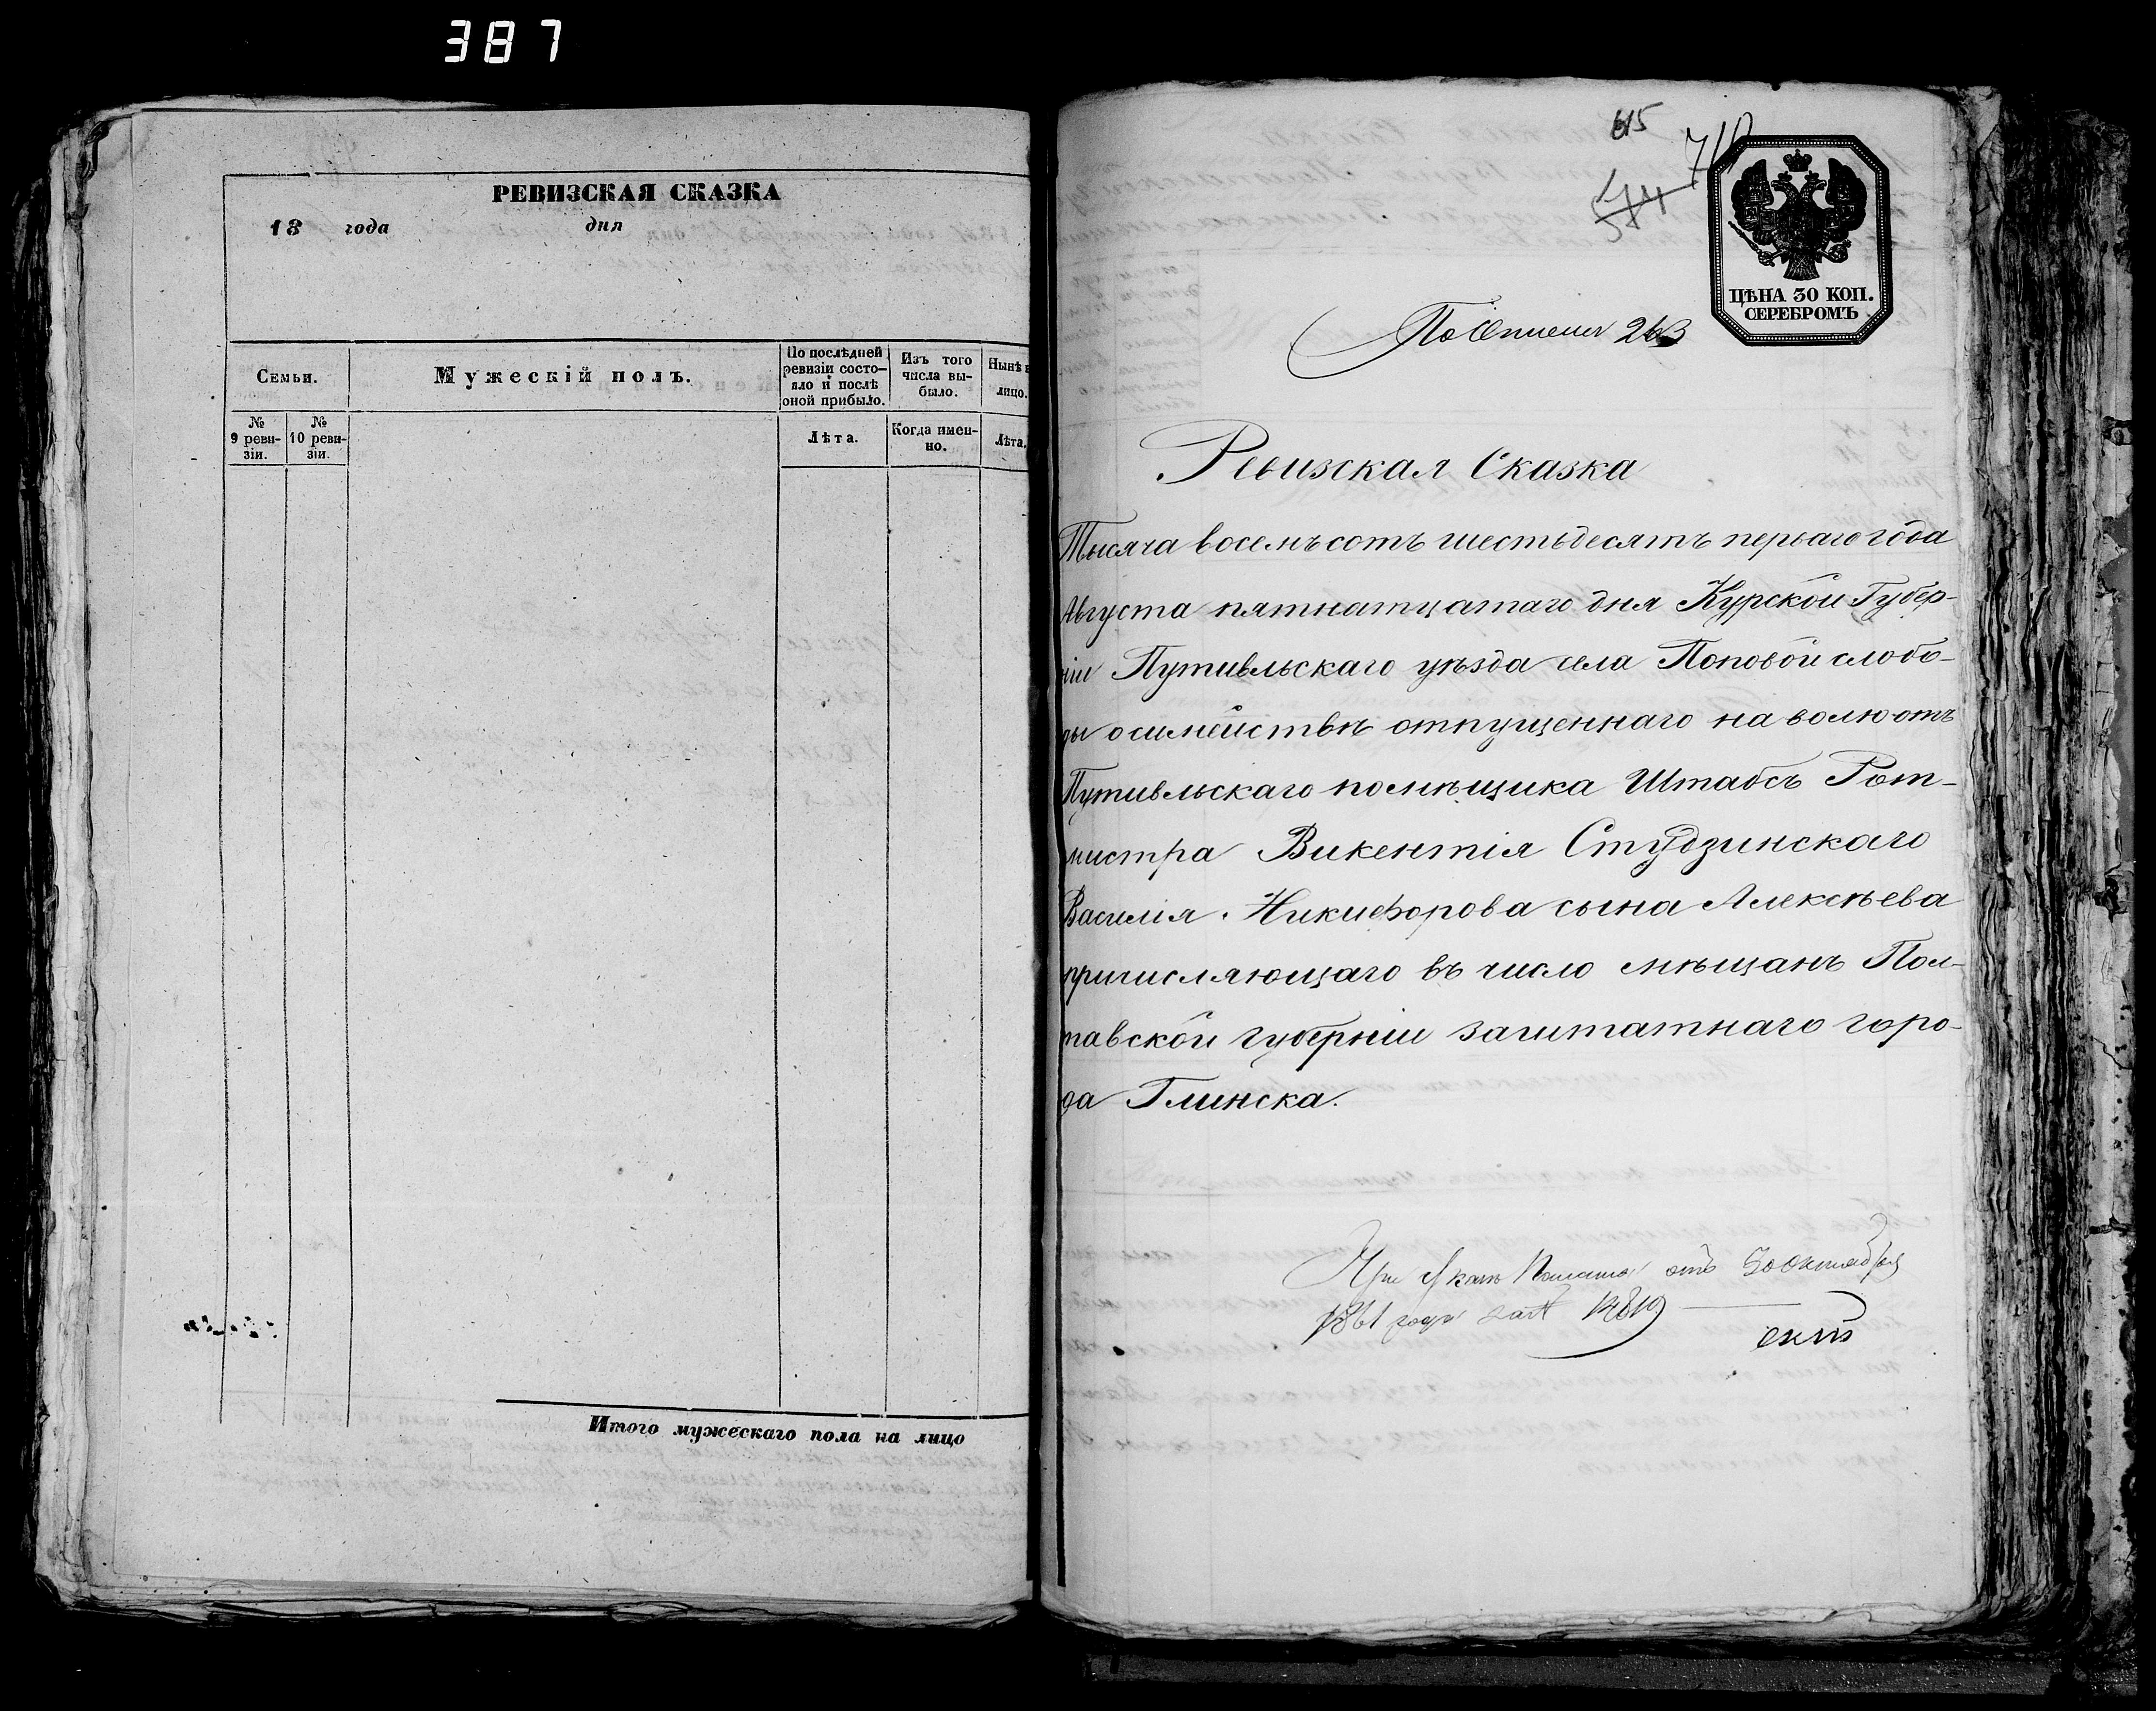 387
РЕВИЗСКАЯ СКАЗКА
18 года дня
Семьи.
Мужескій полъ.
По послѣдней ревизіи состо-
яло и послѣ
оной прибыло.
Изъ того
числа вы-
было.
Нынѣ н
лицо.
№
9 реви-
зіи.
№
10 реви-
зіи.
Лѣта.
Когда имен-
но.
Лѣта.
Итого мужескаго пола на лицо
615
710
574
ЦѢНА 30 КОП.
СЕРЕБРОМЪ
По Описи 263
Ревизская Сказка
Тысяча восемъсотъ шестьдесятъ перваго года
Августа пятнатцатаго дня Курской Губер-
ніи Путивльскаго уѣзда села Поповой слобо-
ды о симействѣ отпущеннаго на волю отъ
Путивльскаго помѣщика Штабсъ Рот-
мистра Викентія Студзинскаго
Василія Никифорова сына Алексѣева
причисляющаго въ число мѣщанъ Пол-
тавской губерніи заштатнаго горо-
да Глинска.
При Указѣ Палаты отъ 30 октября
1861 года за №